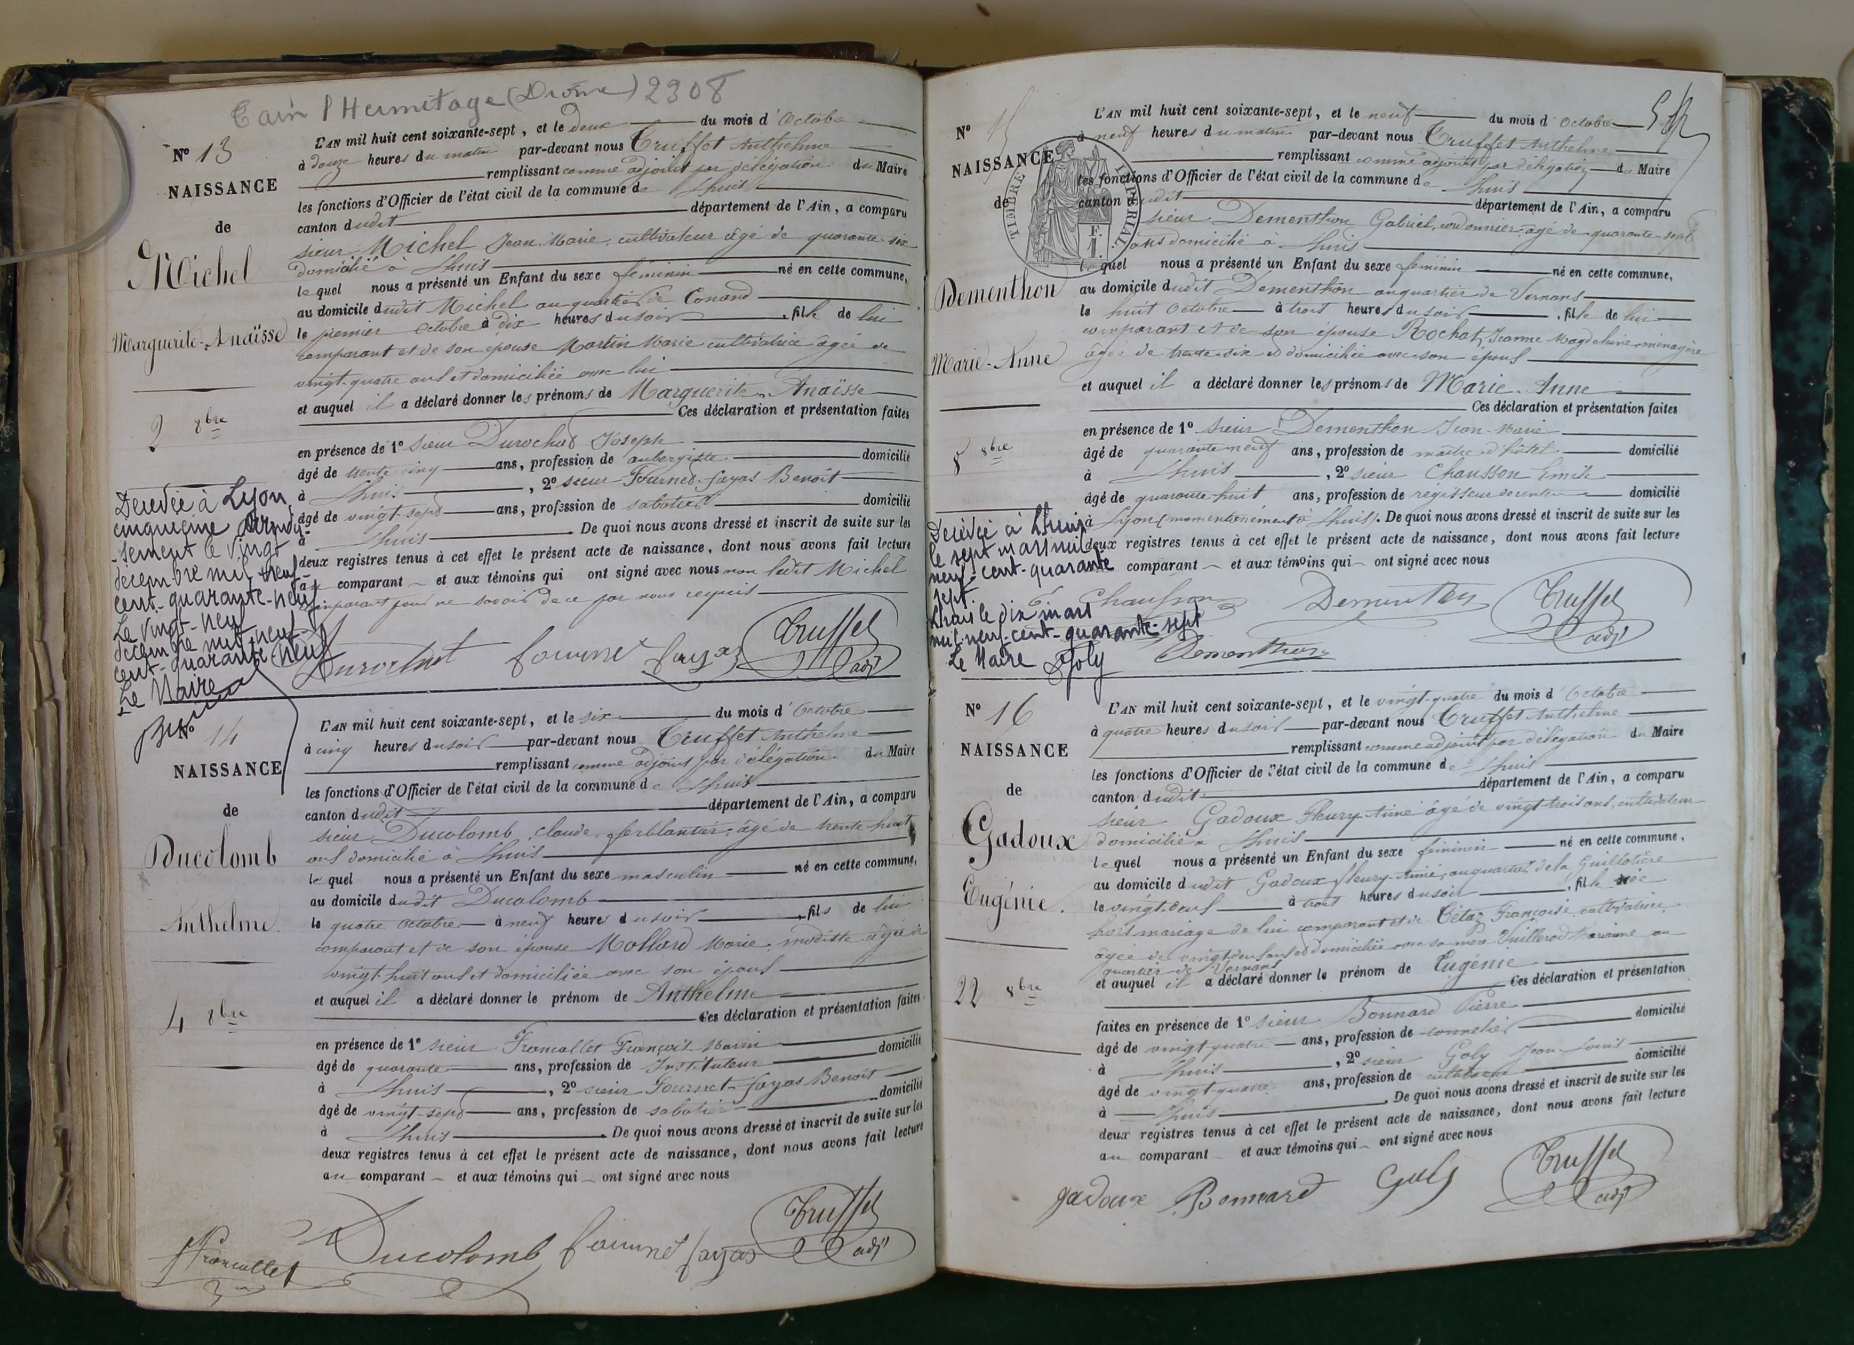 Tain l'Hermitage (Drôme) 2308
Nº 13
NAISSANCE
de
Michel
Marguerite-Anaïsse
2 8bre
Décédée à Lyon
cinquième arrondis-
-sement le vingt
décembre mil neuf-
cent-quarante-neuf
Le vingt-neuf
décembre mil neuf-
cent-quarante neuf
Le Maire
L'AN mil huit cent soixante-sept, et le deux du mois d'Octobre
à douze heures du matin par-devant nous Truffet Anthelme
remplissant comme adjoint par délégation du Maire
les fonctions d'Officier de l'état civil de la commune de Lhuis
canton dudit département de l'Ain, a comparu
sieur Michel Jean-Marie, cultivateur âgé de quarante-six
domicilié à Lhuis
lequel nous a présenté un Enfant du sexe féminin né en cette commune,
au domicile dudit Michel au quartier de Conand
le premier Octobre à dix heures du soir, fille de lui
comparant et de son épouse Martin Marie cultivatrice âgée de
vingt-quatre ans et domiciliée avec lui
et auquel il a déclaré donner les prénoms de Marguerite-Anaïsse
Ces déclaration et présentation faites
en présence de 1º sieur Durochat Joseph
âgé de trente cinq ans, profession de aubergiste domicilié
à Lhuis, 2º sieur Fournet-fayas Benoit
âgé de vingt-sept ans, profession de sabotier domicilié
à Lhuis De quoi nous avons dressé et inscrit de suite sur les
deux registres tenus à cet effet le présent acte de naissance, dont nous avons fait lecture
au comparant et aux témoins qui ont signé avec nous non ledit Michel
comparant pour ne savoir de ce par nous requis
Durochat fournet fayas Truffet adjt
Nº 14
NAISSANCE
de
Ducolomb
Anthelme
4 8bre
L'AN mil huit cent soixante-sept, et le six du mois d'Octobre
à cinq heures du soir par-devant nous Truffet Anthelme
remplissant comme adjoint par délégation du Maire
les fonctions d'Officier de l'état civil de la commune de Lhuis
canton dudit département de l'Ain, a comparu
sieur Ducolomb, Claude, ferblantier, âgé de trente-huit
ans domicilié à Lhuis
lequel nous a présenté un Enfant du sexe masculin né en cette commune,
au domicile dudit Ducolomb
le quatre Octobre à neuf heures du soir, fils de lui
comparant et de son épouse Mollard Marie, modiste âgée de
vingt-huit ans et domiciliée avec son époux
et auquel il a déclaré donner le prénom de Anthelme
Ces déclaration et présentation faites
en présence de 1º sieur Francallet François Marin
âgé de quarante ans, profession de Instituteur domicilié
à Lhuis, 2º sieur Fournet-fayas Benoit
âgé de vingt-sept ans, profession de sabotier domicilié
à Lhuis De quoi nous avons dressé et inscrit de suite sur les
deux registres tenus à cet effet le présent acte de naissance, dont nous avons fait lecture
au comparant et aux témoins qui ont signé avec nous
Francallet Ducolomb fournet fayas Truffet adjt
Nº 15
NAISSANCE
de
TIMBRE IMPÉRIAL
Dementhon
Marie-Anne
8 8bre
Décédée à Lhuis
le sept mars mil
neuf-cent-quarante
sept.
Lhuis le dix mars
mil-neuf-cent-quarante-sept
Le Maire Goly
L'AN mil huit cent soixante-sept, et le neuf du mois d'Octobre
à neuf heures du matin par-devant nous Truffet Anthelme
remplissant comme adjoint par délégation du Maire
les fonctions d'Officier de l'état civil de la commune de Lhuis
canton dudit département de l'Ain, a comparu
sieur Dementhon Gabriel, cordonnier, âgé de quarante-sept
ans domicilié à Lhuis
lequel nous a présenté un Enfant du sexe féminin né en cette commune,
au domicile dudit Dementhon au quartier de Vernans
le huit Octobre à trois heures du soir, fille de lui
comparant et de son épouse Rochat, Jeanne Magdeleine ménagère
âgée de trente-six et domiciliée avec son époux
et auquel il a déclaré donner les prénoms de Marie-Anne
Ces déclaration et présentation faites
en présence de 1º sieur Dementhon Jean-Marie
âgé de quarante neuf ans, profession de maître d'hôtel domicilié
à Lhuis, 2º sieur Chausson Emile
âgé de quarante-huit ans, profession de régisseur domicilié
à Lyon (momentanément à Lhuis). De quoi nous avons dressé et inscrit de suite sur les
deux registres tenus à cet effet le présent acte de naissance, dont nous avons fait lecture
comparant et aux témoins qui ont signé avec nous
E. Chausson Dementhon Truffet adjt
Dementhon
Nº 16
NAISSANCE
de
Gadoux
Eugénie.
22 8bre
L'AN mil huit cent soixante-sept, et le vingt-quatre du mois d'Octobre
à quatre heures du soir par-devant nous Truffet Anthelme
remplissant comme adjoint par délégation du Maire
les fonctions d'Officier de l'état civil de la commune de Lhuis
canton dudit département de l'Ain, a comparu
sieur Gadoux Fleury-Aimé âgé de vingt-trois ans, cultivateur
domicilié à Lhuis
lequel nous a présenté un Enfant du sexe féminin né en cette commune,
au domicile dudit Gadoux fleury Aimé, au quartier de la Guillotière
le vingt-deux à trois heures du soir, fille née
hors mariage de lui comparant et de Françoise, cultivatrice,
âgée de vingt-deux ans et domiciliée avec sa mère au
quartier de Vernans
et auquel il a déclaré donner le prénom de Eugénie Ces déclaration et présentation
faites en présence de 1º sieur Bonnard Pierre
âgé de vingt-quatre ans, profession de tonnelier domicilié
à Lhuis, 2º sieur Goly Jean-Louis
âgé de vingt-quatre ans, profession de cultivateur domicilié
à Lhuis De quoi nous avons dressé et inscrit de suite sur les
deux registres tenus à cet effet le présent acte de naissance, dont nous avons fait lecture
au comparant et aux témoins qui ont signé avec nous
gadoux Bonnard Goly Truffet adjt